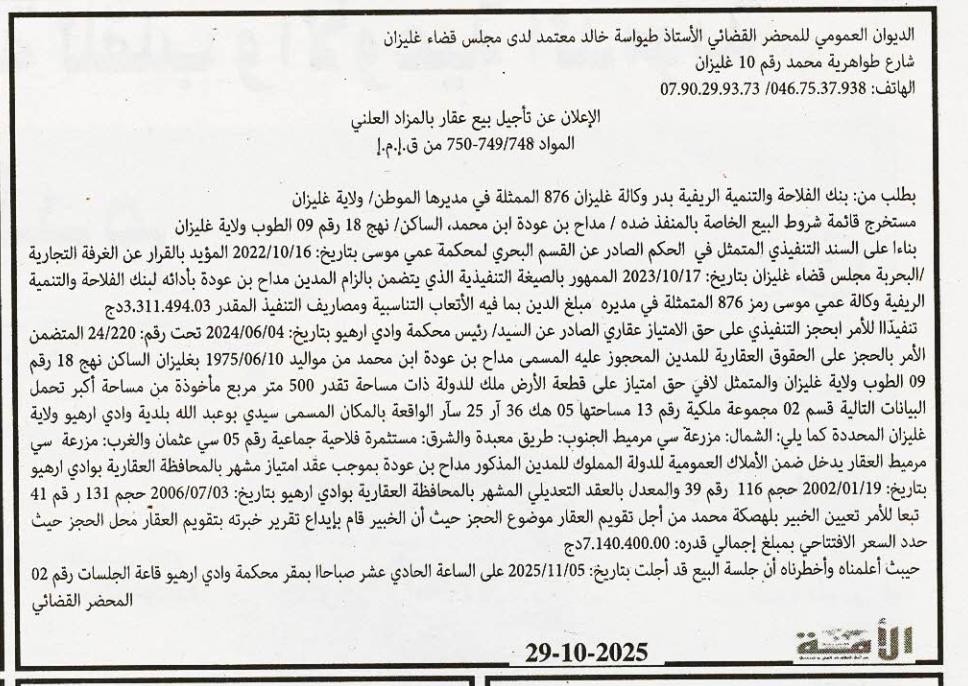 الديوان العمومي للمحضر القضائي الأستاذ طيواسة خالد معتمد لدى مجلس قضاء غليزان
شارع طواهرية محمد رقم 10 غليزان
الهاتف: 046.75.37.938/ 07.90.29.93.73
الإعلان عن تأجيل بيع عقار بالمزاد العلني
المواد 749/748-750 من ق.إ.م.إ
بطلب من: بنك الفلاحة والتنمية الريفية بدر وكالة غليزان 876 الممثلة في مديرها الموطن/ ولاية غليزان
مستخرج قائمة شروط البيع الخاصة بالمنفذ ضده / مداح بن عودة ابن محمد، الساكن/ نهج 18 رقم 09 الطوب ولاية غليزان
بناءا على السند التنفيذي المتمثل في الحكم الصادر عن القسم البحري لمحكمة عمي موسى بتاريخ: 2022/10/16 المؤيد بالقرار عن الغرفة التجارية
/البحرية مجلس قضاء غليزان بتاريخ: 2023/10/17 الممهور بالصيغة التنفيذية الذي يتضمن بالزام المدين مداح بن عودة بأدائه لبنك الفلاحة والتنمية
الريفية وكالة عمي موسى رمز 876 المتمثلة في مديره مبلغ الدين بما فيه الأتعاب التناسبية ومصاريف التنفيذ المقدر 3.311.494.03دج
تنفيذًاا للأمر ابحجز التنفيذي على حق الامتياز عقاري الصادر عن السيد/ رئيس محكمة وادي ارهيو بتاريخ: 2024/06/04 تحت رقم: 24/220 المتضمن
الأمر بالحجز على الحقوق العقارية للمدين المحجوز عليه المسمى مداح بن عودة ابن محمد من مواليد 1975/06/10 بغليزان الساكن نهج 18 رقم
09 الطوب ولاية غليزان والمتمثل لافيَ حق امتياز على قطعة الأرض ملك للدولة ذات مساحة تقدر 500 متر مربع مأخوذة من مساحة أكبر تحمل
البيانات التالية قسم 02 مجموعة ملكية رقم 13 مساحتها 05 هك 36 آر 25 سآر الواقعة بالمكان المسمى سيدي بوعبد الله بلدية وادي ارهيو ولاية
غليزان المحددة كما يلي: الشمال: مزرعة سي مرميط الجنوب: طريق معبدة والشرق: مستثمرة فلاحية جماعية رقم 05 سي عثمان والغرب: مزرعة سي
مرميط العقار يدخل ضمن الأملاك العمومية للدولة المملوك للمدين المذكور مداح بن عودة بموجب عقد امتياز مشهر بالمحافظة العقارية بوادي ارهيو
بتاريخ: 2002/01/19 حجم 116 رقم 39 والمعدل بالعقد التعديلي المشهر بالمحافظة العقارية بوادي ارهيو بتاريخ: 2006/07/03 حجم 131 ر قم 41
تبعا للأمر تعيين الخبير بلهصكة محمد من أجل تقويم العقار موضوع الحجز حيث أن الخبير قام بإيداع تقرير خبرته بتقويم العقار محل الحجز حيث
حدد السعر الافتتاحي بمبلغ إجمالي قدره: 7.140.400.00دج
حيبث أعلمناه وأخطرناه أن جلسة البيع قد أجلت بتاريخ: 2025/11/05 على الساعة الحادي عشر صباحاا بمقر محكمة وادي ارهيو قاعة الجلسات رقم 02
المحضر القضائي
29-10-2025
الأمة